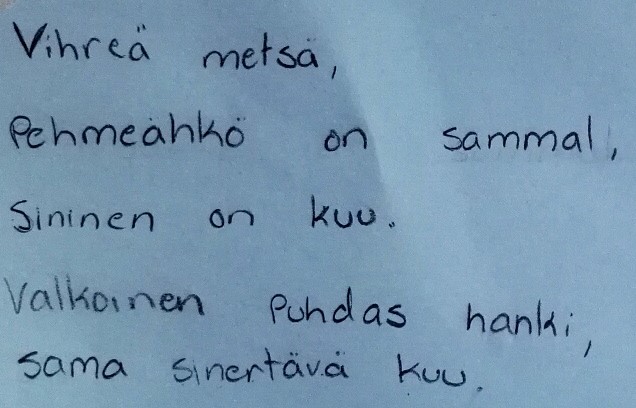 Vihreä metsä,
Pehmeähkö on sammal,
Sininen on kuu.
Valkoinen Puhdas hanki,
sama sinertävä kuu.